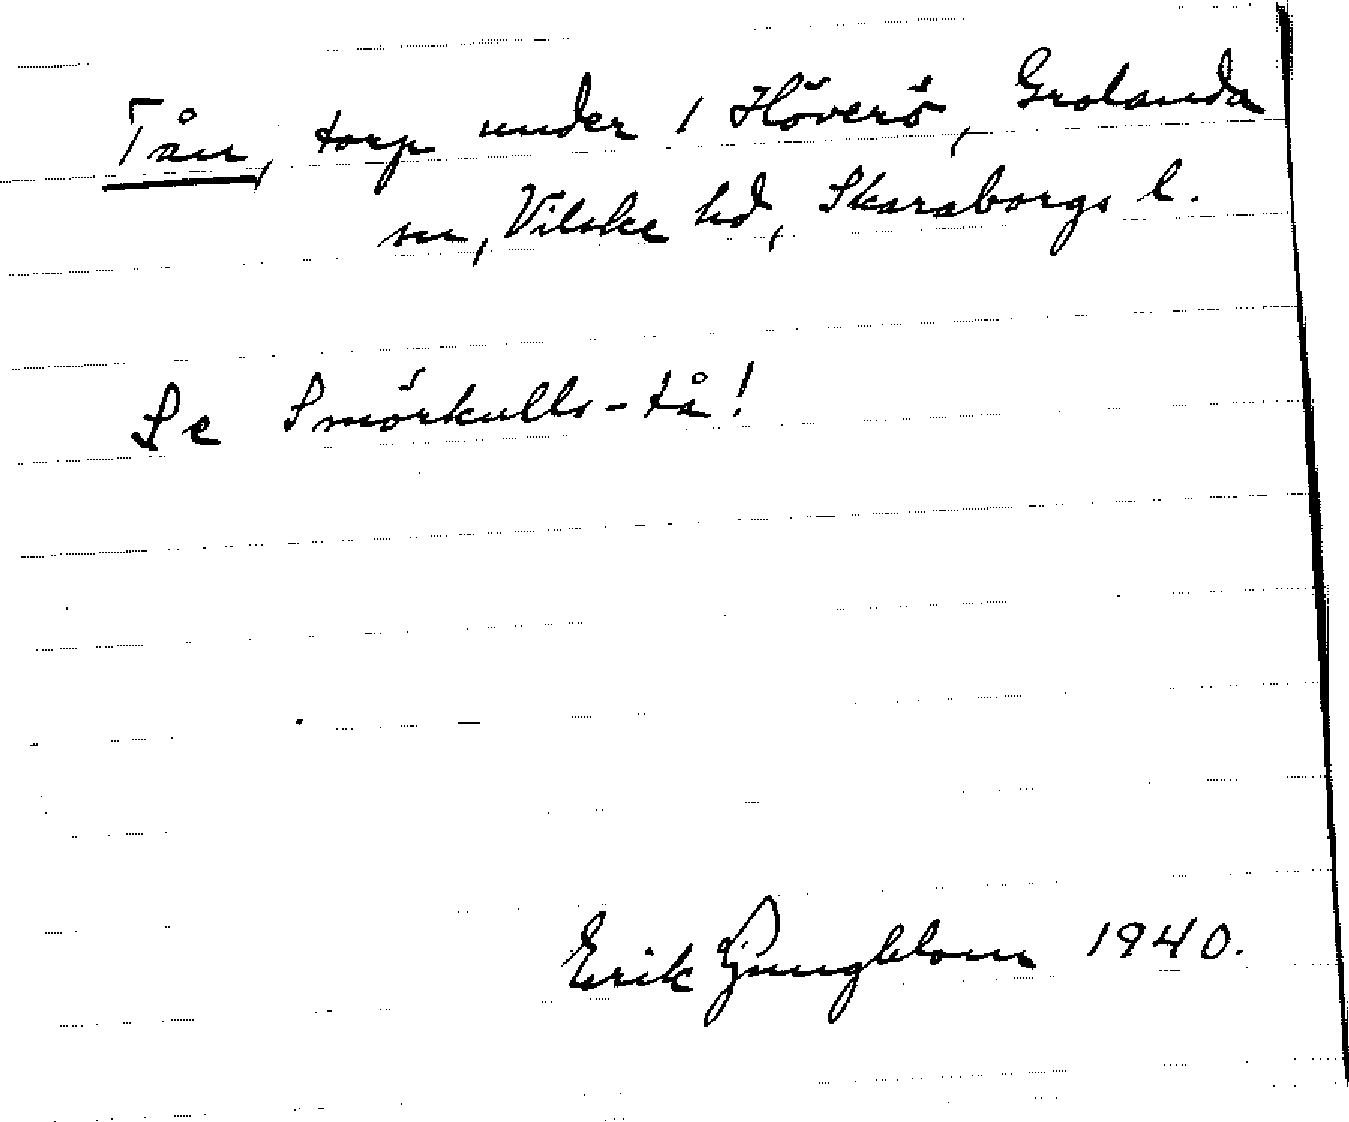 Tån, torp under 1 Höverö, Grolanda
sn, Vilske hd, Skaraborgs l.
Se Smörkulls-tå!
Erik Ljungblom 1940.